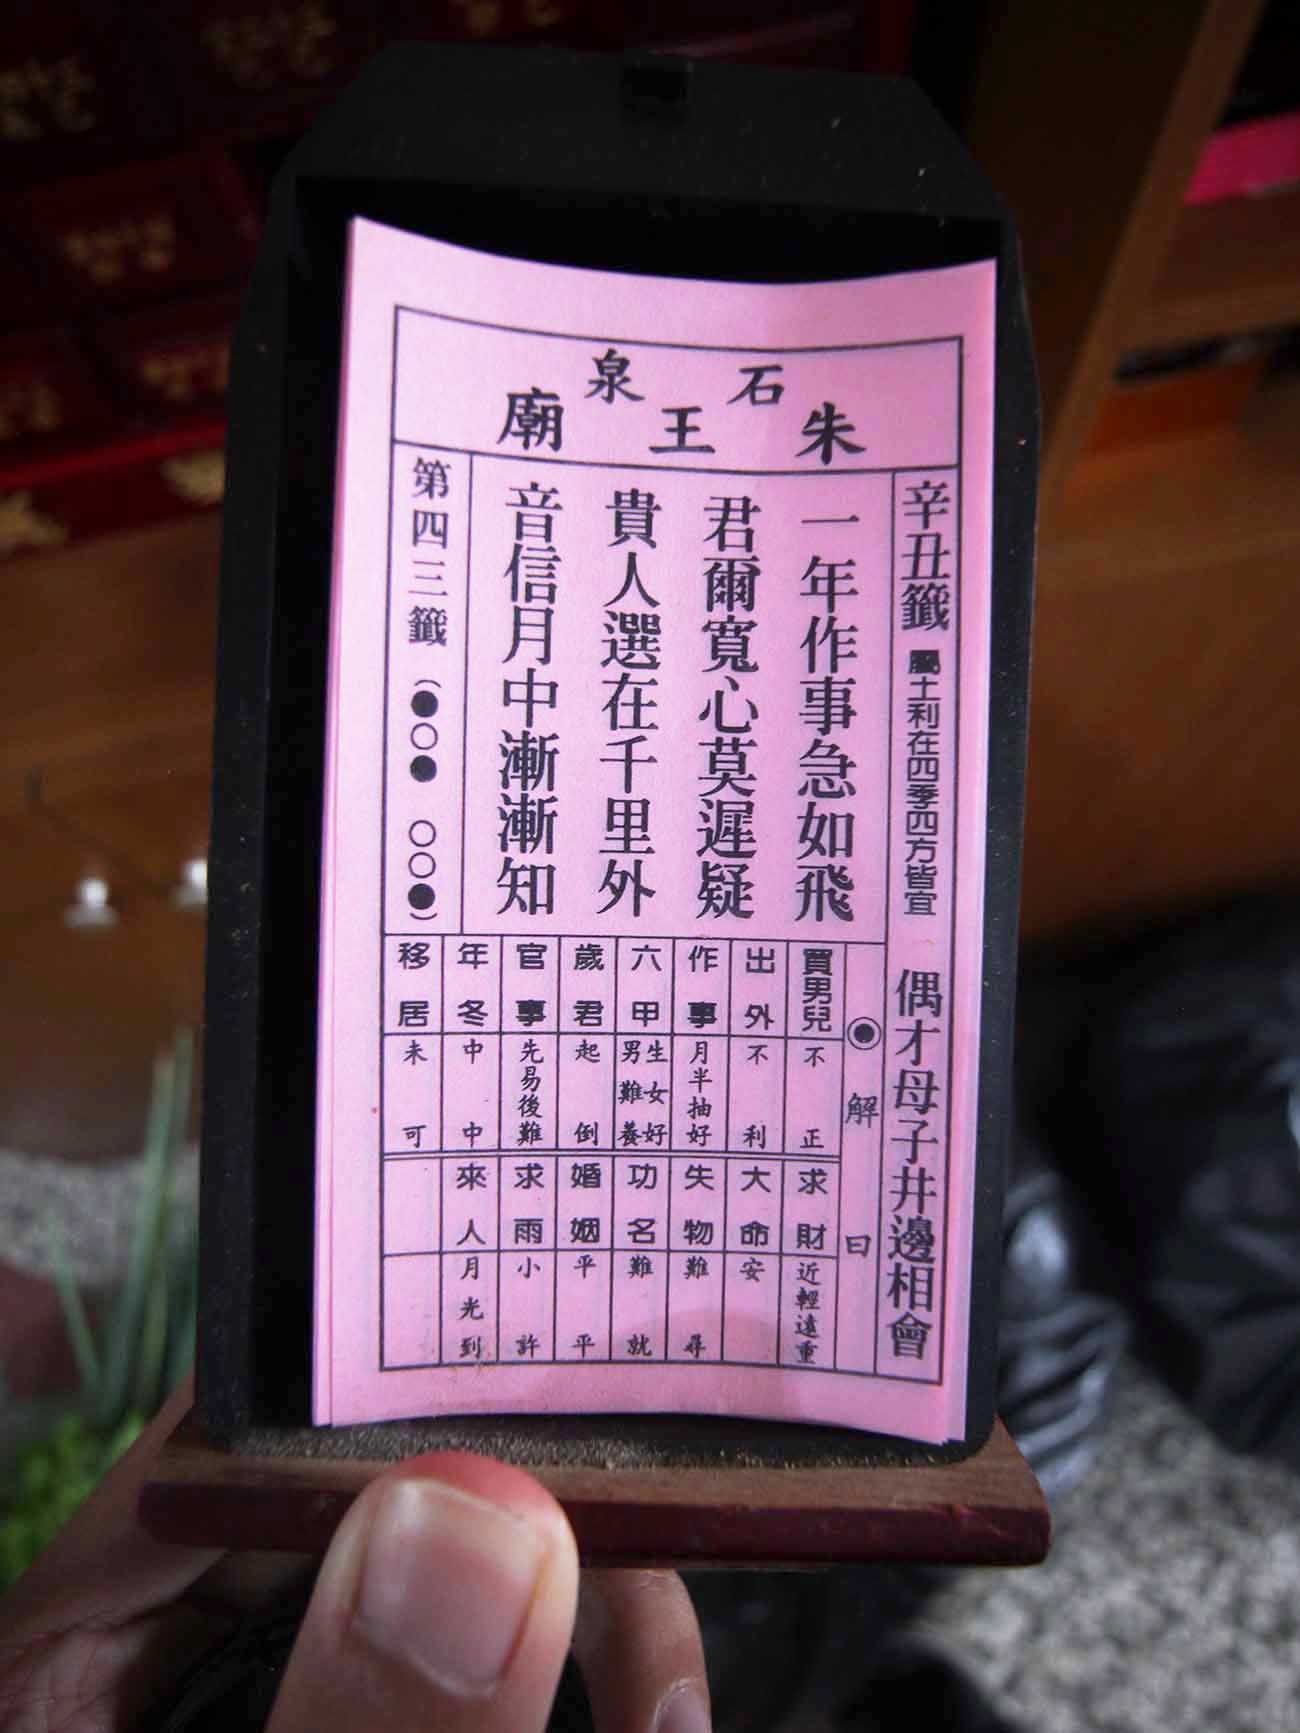 石泉
朱王廟
辛丑籤 屬土利在四季四方皆宜 偶才母子井邊相會
一年作事急如飛
君爾寬心莫遲疑
貴人選在千里外
音信月中漸漸知
第四三籤(●○● ○○●)
◉解曰
買男兒 不正
出外 不利
作事 月半抽好
六甲 生女好男難養
歲君 起倒
官事 先易後難
年冬 中中
移居 未可
求財 近輕遠重
大命 安
失物 難尋
功名 難就
婚姻 平平
求雨 小許
來人 月光到